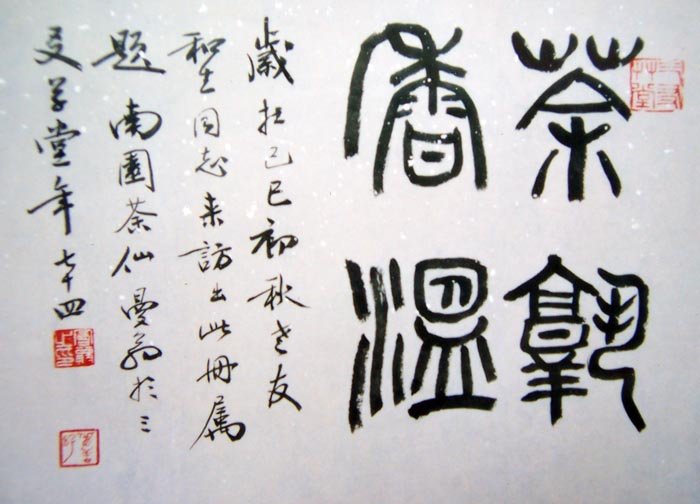 茶熟
香溫
歲在己巳初秋老友
和生同志来訪出此冊属
题南園茶仙曼翁於三
友草堂年七十四